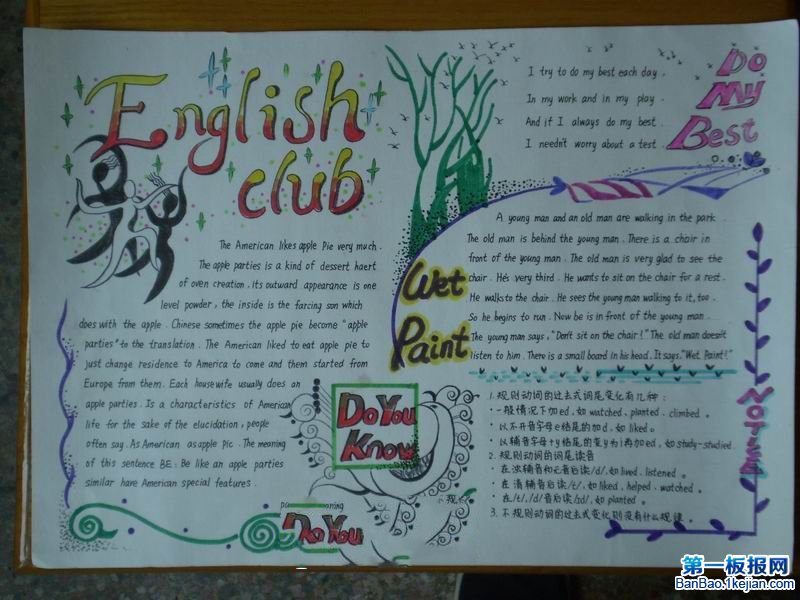 English
club
The American likes apple Pie very much.
The apple parties is a kind of dessert haert
of oven creation, its outward appearance is one
level powder, the inside is the farcing son which
does with the apple. Chinese sometimes the apple pie become "apple
parties" to the translation. The American liked to eat apple pie to
just change residence to America to come and them started from
Europe from them. Each housewife usually does an
apple parties. Is a characteristics of American
life for the sake of the elucidation, people
often say. As American as apple pic. The meaning
of this sentence BE: Be like an apple parties
similar have American special features.
Do You
Know
Do You
I try to do my best each day.
In my work and in my play.
And if I always do my best.
I needn't worry about a test.
Do
My
Best
Wet
Paint
A young man and an old man are walking in the park.
The old man is behind the young man. There is a chair in
front of the young man. The old man is very glad to see the
chair. He's very third. He wants to sit on the chair for a rest.
He walks to the chair. He sees the young man walking to it, too.
So he begins to run. Now be is in front of the young man.
The young man says, "Don't sit on the chair!" The old man doesn't
listen to him. There is a small board in his head. It says, "Wet Paint!"
1. 规则动词的过去式词尾变化有几种:
· 一般情况下加ed, 如 watched、planted、climbed。
· 以不开音字母e结尾的加d, 如 liked。
· 以辅音字母+y结尾的变y为i再加ed, 如 study-studied
2. 规则动词的词尾读音
· 在浊辅音和元音后读/d/, 如 lived、listened。
· 在清辅音后读/t/, 如 liked、helped、watched。
· 在/t/、/d/音后读/id/, 如 planted。
3. 不规则动词的过去式变化则没有什么规律。
第一板报网
BanBao.1kejian.com